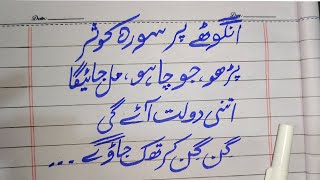 انگوٹھے پر سورہ کوثر
پڑھو، جو چاہو، مل جائیگا
اتنی دولت آئے گی
گن گن کر تھک جاؤ گے ...